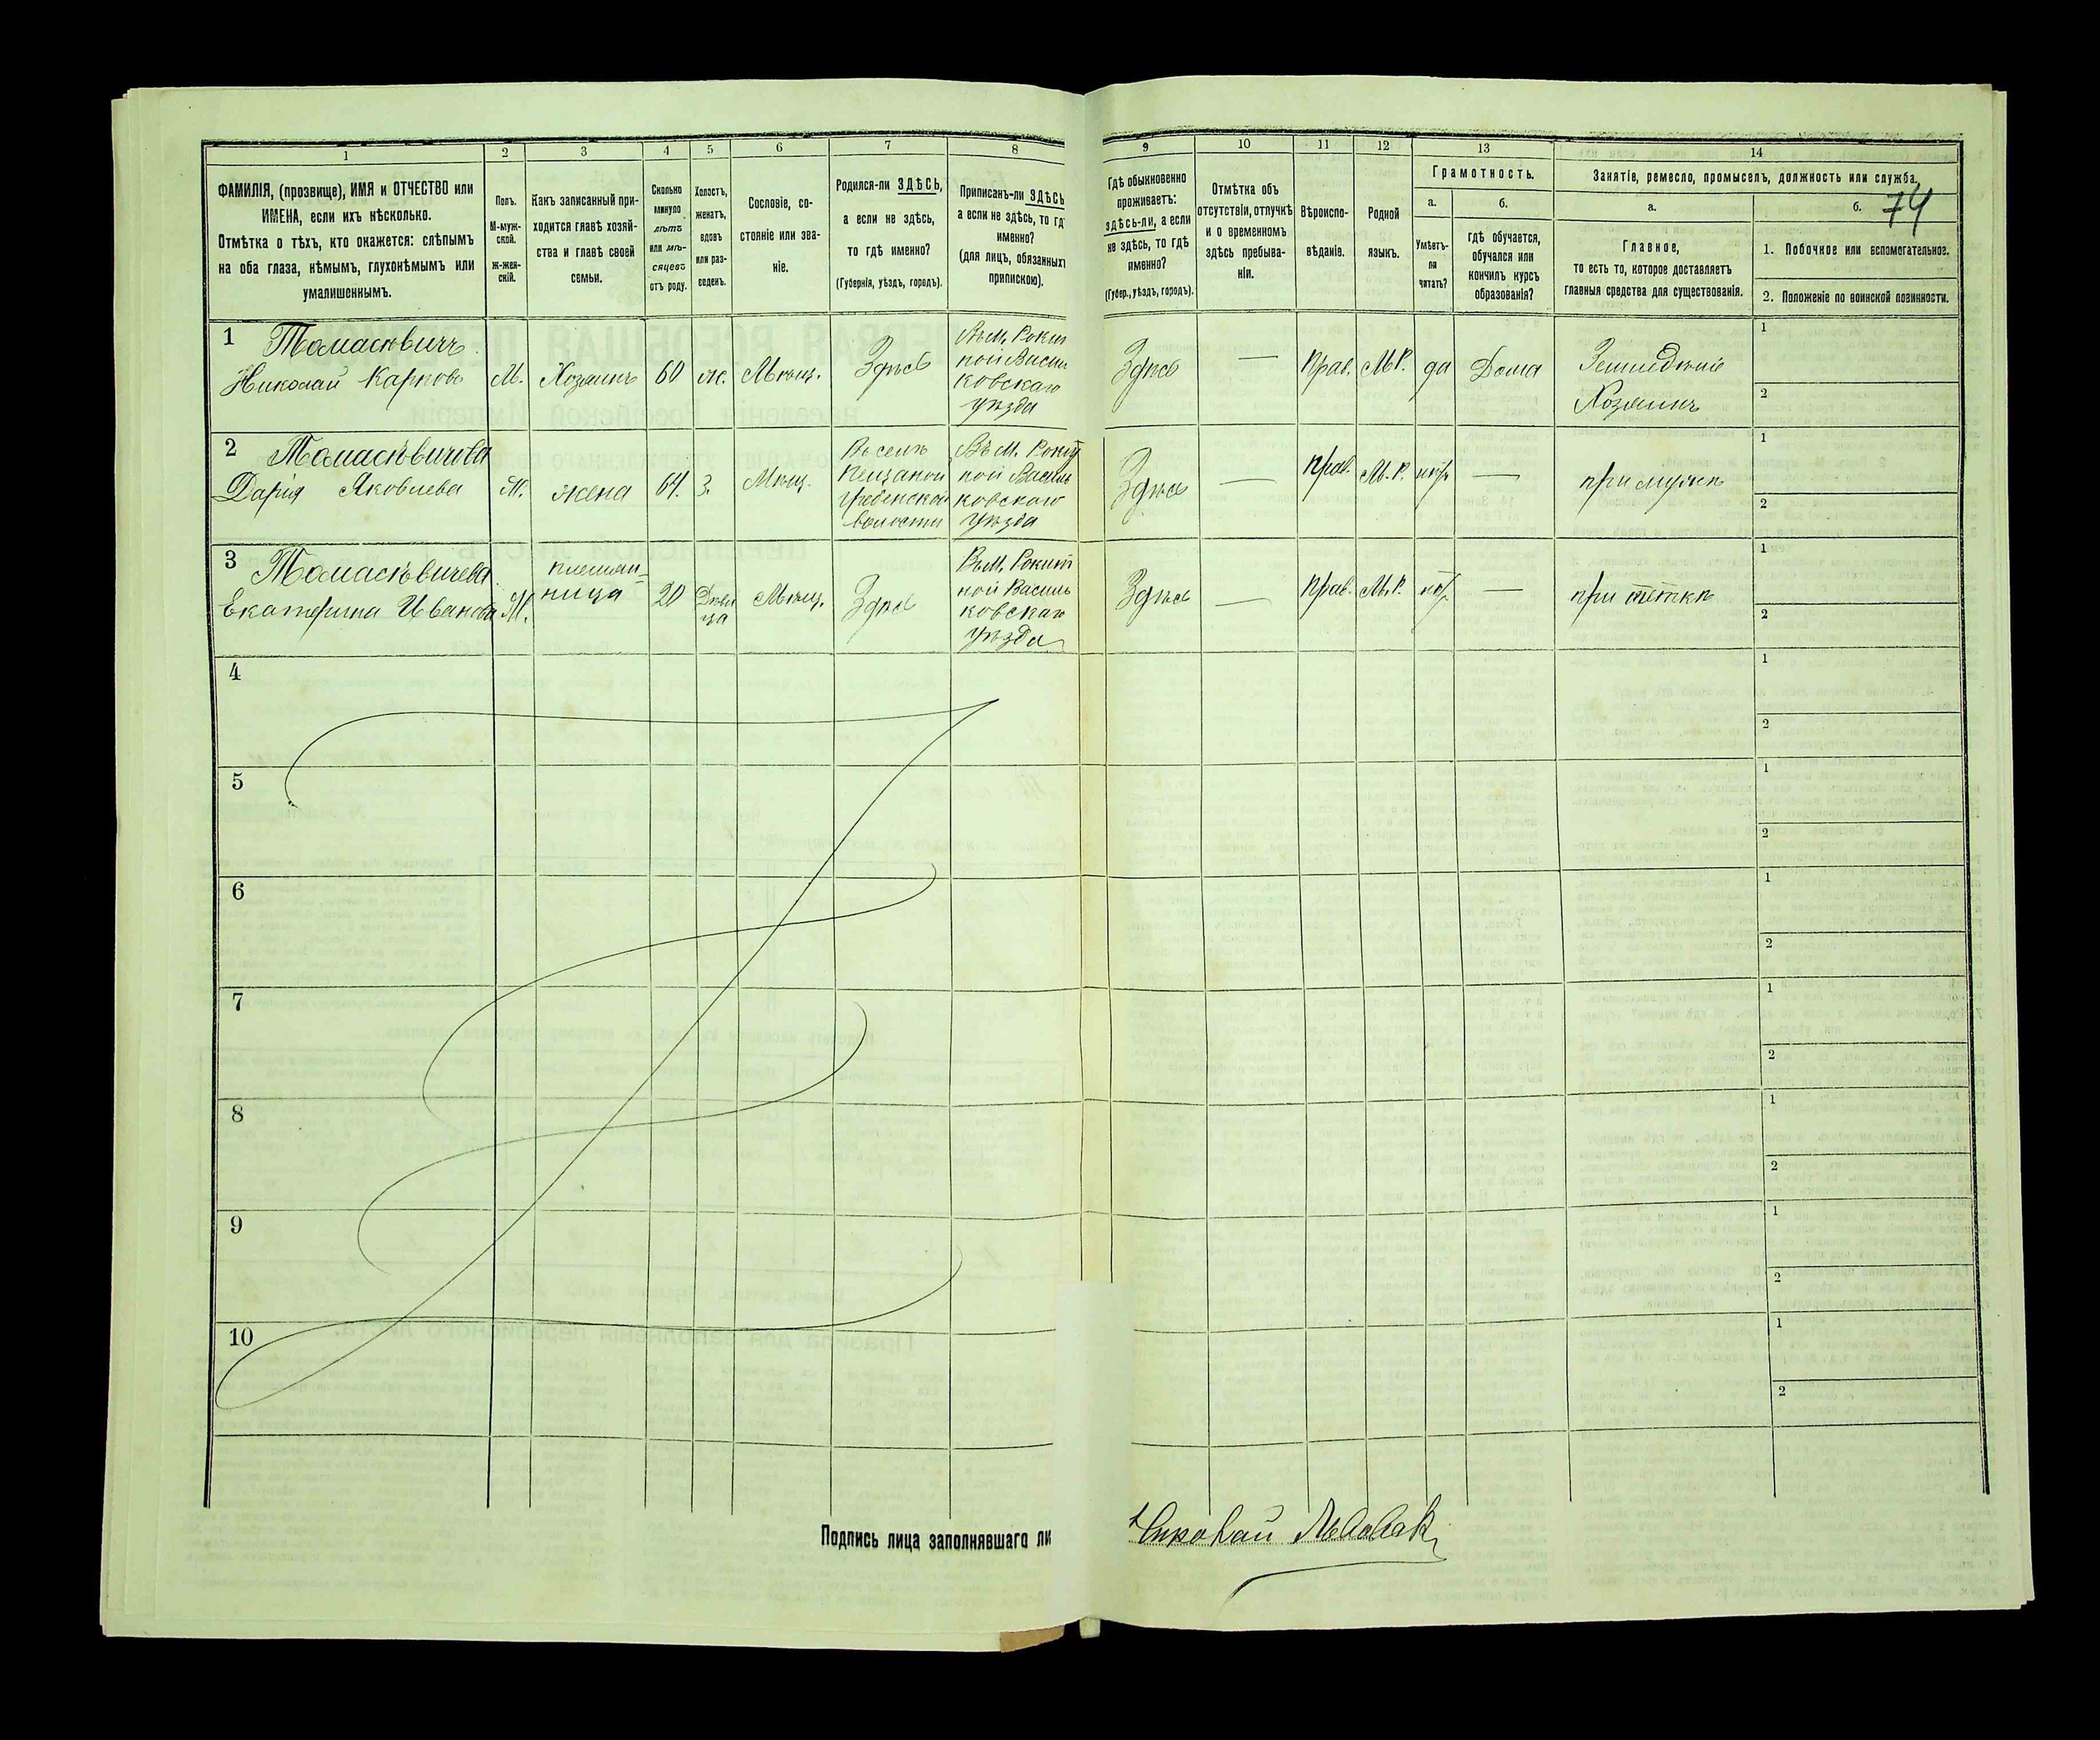 1 2 3 4 5 6 7 8 9 10 11 12 13 14
ФАМИЛІЯ, (прозвище), ИМЯ и ОТЧЕСТВО или
ИМЕНА, если ихъ нѣсколько.
Отмѣтка о тѣхъ, кто окажется: слѣпымъ
на оба глаза, нѣмымъ, глухонѣмымъ или
умалишеннымъ.
Полъ.
М-муж-
ской.
Ж-жен-
скій.
Какъ записанный при-
ходится главѣ хозяй-
ства и главѣ своей
семьи.
Сколько
минуло
лѣтъ
или мѣ-
сяцевъ
отъ роду.
Холостъ,
женатъ,
вдовъ
или раз-
веденъ.
Сословіе, со-
стояніе или зва-
ніе.
Родился-ли ЗДѢСЬ,
а если не здѣсь,
то гдѣ именно?
(Губернія, уѣздъ, городъ).
Приписанъ-ли ЗДѢСЬ
а если не здѣсь, то гд
именно?
(для лицъ, обязанных
припискою).
Гдѣ обыкновенно
проживаетъ:
здѣсь-ли, а если
не здѣсь, то гдѣ
именно?
(Губер., уѣздъ, городъ).
Отмѣтка объ
отсутствіи, отлучкѣ
и о временномъ
здѣсь пребыва-
ніи.
Вѣроиспо-
вѣданіе.
Родной
языкъ.
Грамотность.
а.
Умѣетъ-
ли
читать?
б.
гдѣ обучается,
обучался или
кончилъ курсъ
образованія?
Занятіе, ремесло, промыселъ, должность или служба.
74
а.
Главное,
то есть то, которое доставляетъ
главныя средства для существованія.
б.
1. Побочное или вспомогательное.
2. Положеніе по воинской повинности.
1 Томасѣвичъ
Николай Карповъ
М.
Хозяинъ
60
ж.
Мѣщ.
Здѣсь
Въ М. Рокит
ной Василь
ковскаго
уѣзда
Здѣсь
—
Прав.
М.Р.
да
Дома
Земледѣліе
Хозяинъ
1
2
2 Томасѣвичова
Дарія Яковлева
Ж.
жена
64.
З.
Мѣщ.
Въ селѣ
Пещаной
Гребенской
волости
Въ М. Рокит
ной Василь
ковскаго
уѣзда
Здѣсь
—
прав.
М.Р.
нѣтъ
—
при мужѣ
1
2
3 Томасѣвичева
Екатерина Иванова
Ж.
племян-
ница
20
Дѣви
ца
Мѣщ.
Здѣсь
Въ М. Рокит
ной Василь
ковскаго
уѣзда
Здѣсь
—
Прав.
М.Р.
нѣтъ
—
при тёткѣ
1
2
4
1
2
5
1
2
6
1
2
7
1
2
8
1
2
9
1
2
10
1
2
Подпись лица заполнявшаго ли
Николай